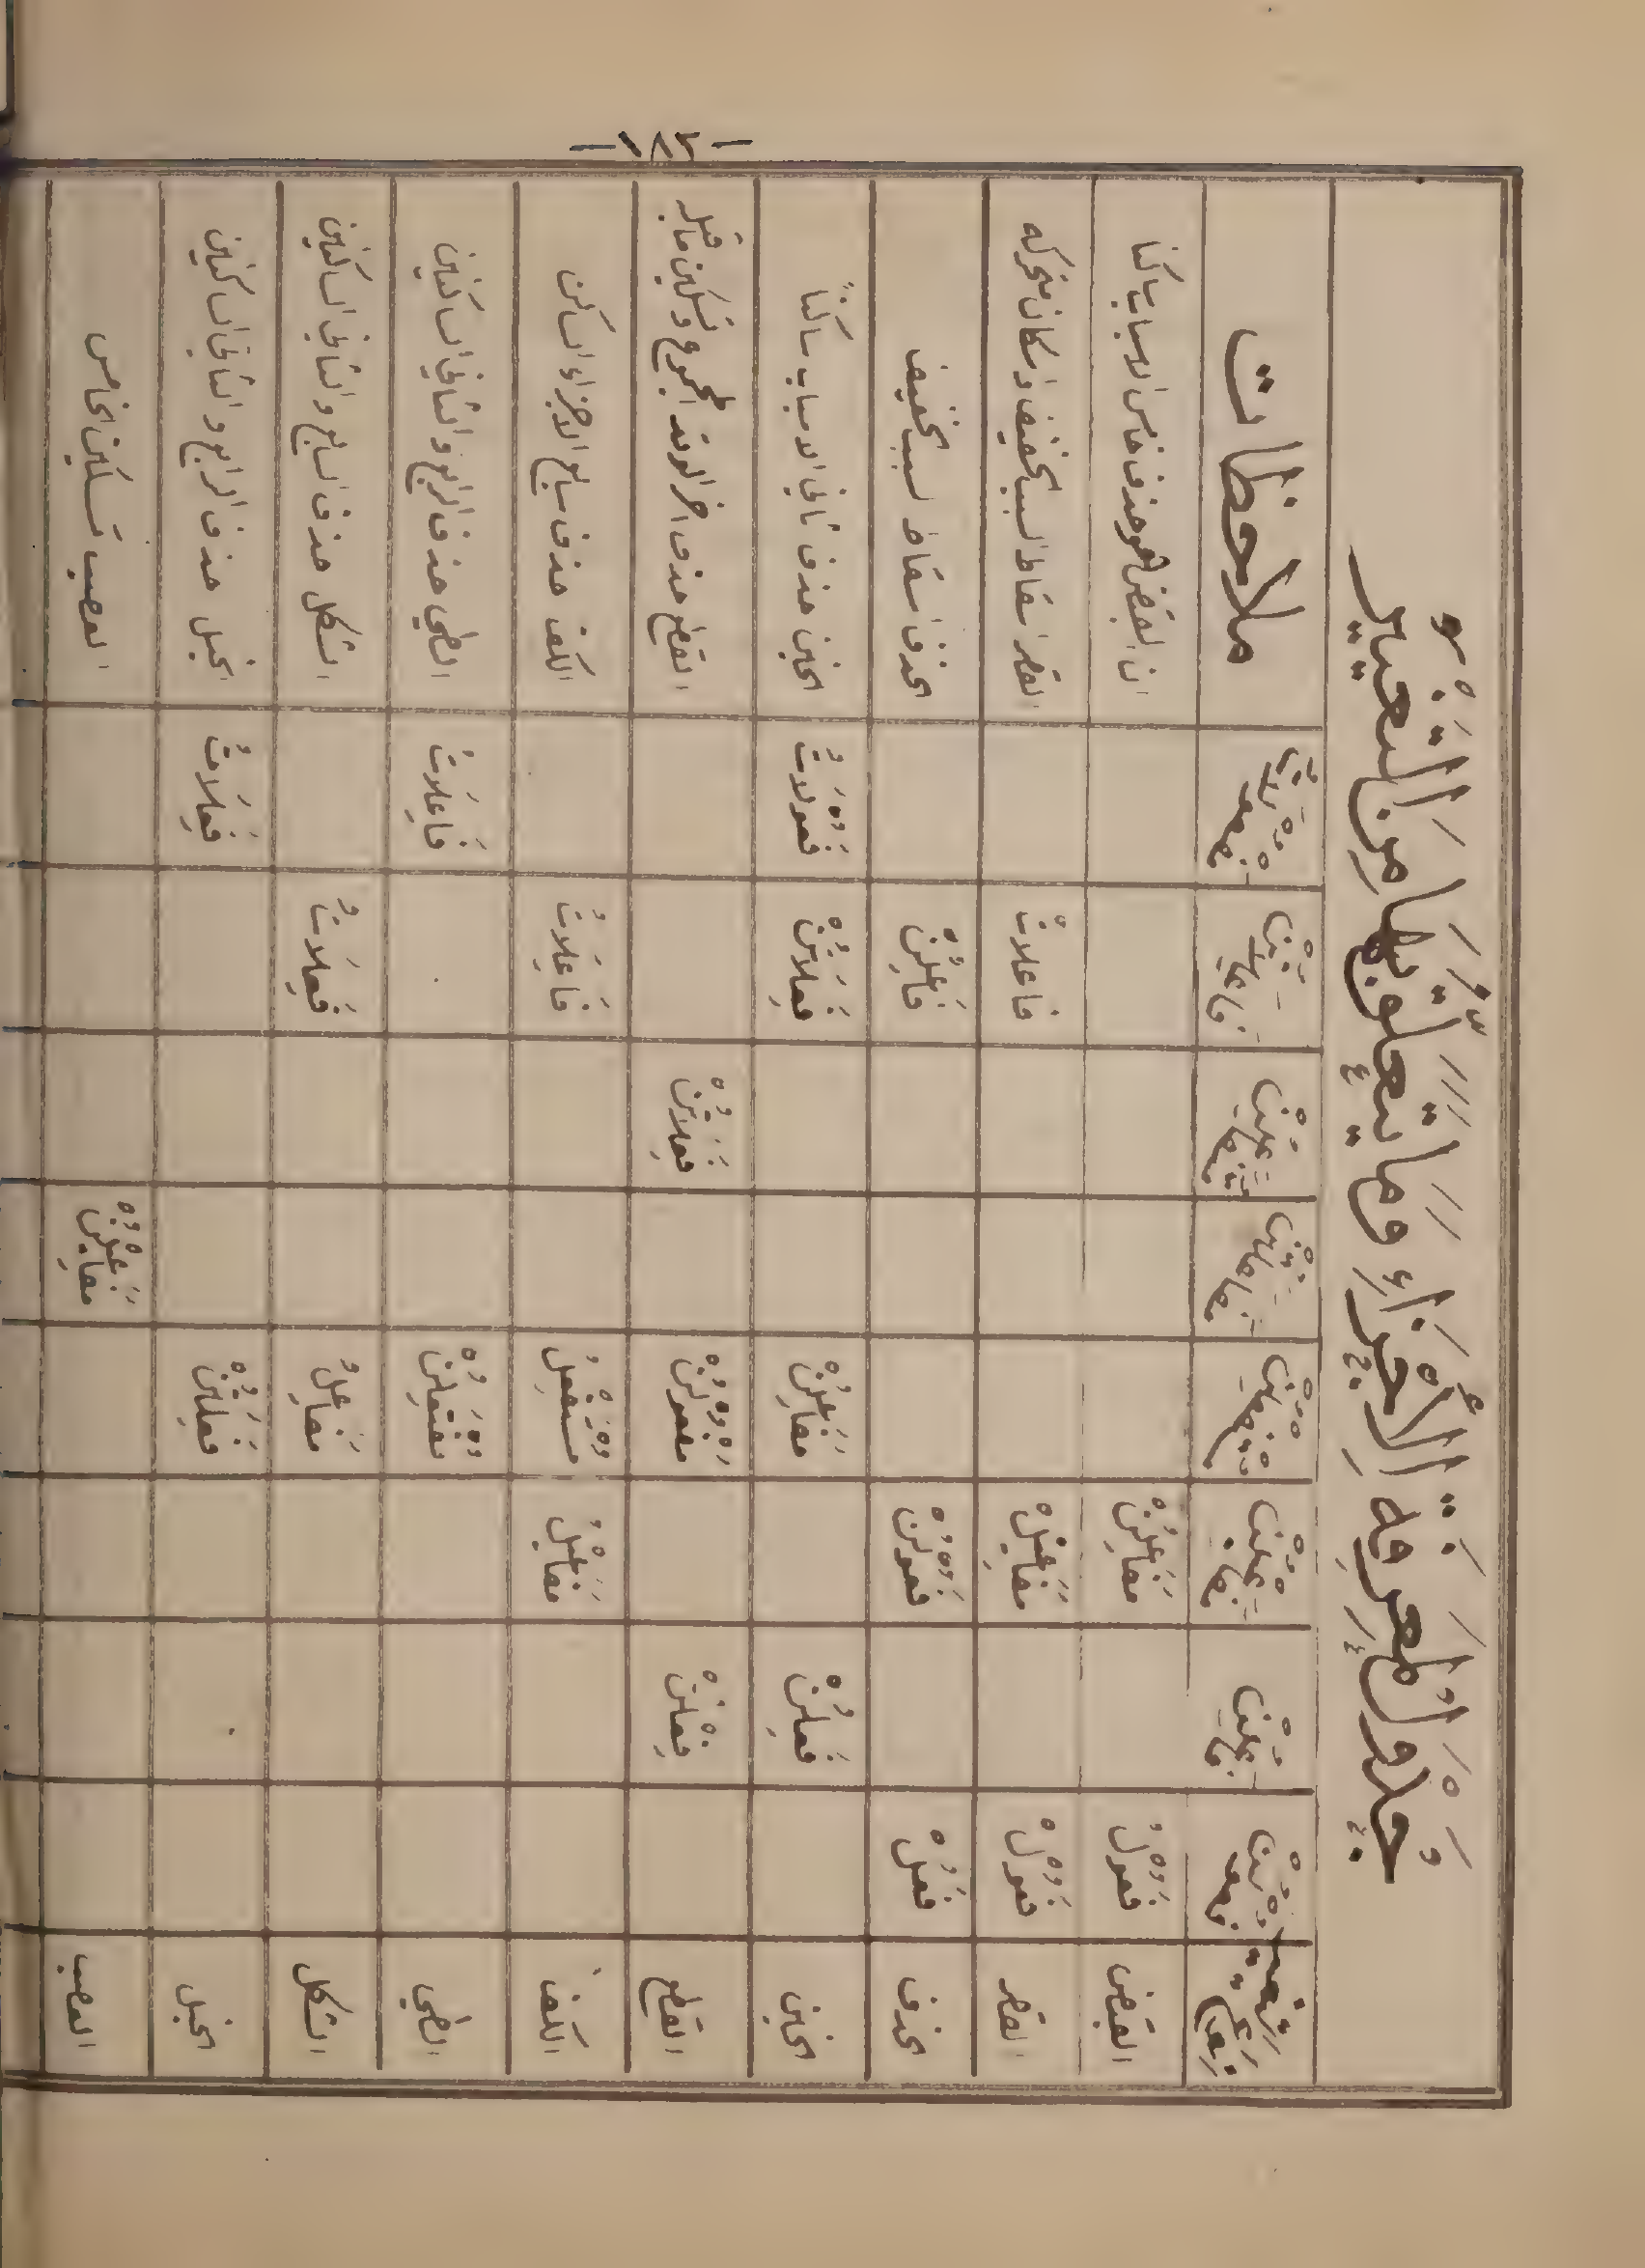 -١٨٢-
جَدْوَلٌ لِمَعْرِفَةِ الأَجْزَاءِ وَمَا يَتَعَلَّقُ بِهَا مِنَ التَّغْيِيرِ
فَعُولُنْ فَاعِلُنْ مَفَاعِيلُنْ مُسْتَفْعِلُنْ مُفَاعَلَتُنْ مُتَفَاعِلُنْ فَاعِلَاتُنْ مَفْعُولَاتُ ملاحظات
القبض فَعُولُ مَفَاعِلُنْ ان القبض هو حذف خامس الاسباب ساكنا
القصر فَعُولْ مَفَاعِيلْ فاعلاتْ القصر اسقاط السبب الخفيف واسكان متحركه
الحذف فَعُلْ فَعُولُنْ فَاعِلُنْ الحذف اسقاط السبب الخفيف
الخبن فَعِلُنْ مَفَاعِلُنْ فَعِلَاتُنْ فَعُولَاتُ الخبن حذف ثاني الاسباب ساكناً
القطع فِعْلُنْ مَفْعُولُنْ فَعِلَاتُنْ القطع حذف اخر الوتد المجموع وتسكين ما قبله
الكف مَفَاعِيلُ مُسْتَفْعِلُ فَاعِلَاتُ الكف حذف سابع الاجزاء الساكن
الطي مُفْتَعِلُنْ فَاعِلَاتُ الطي حذف الرابع والثاني الساكنين
الشكل مَفَاعِلُ فَعِلَاتُ الشكل حذف السابع والثاني الساكنين
الخبل فَعِلَتُنْ فَعِلَاتُ الخبل حذف الرابع والثاني الساكنين
العصب مَفَاعِيلُنْ العصب تسكين الخامس